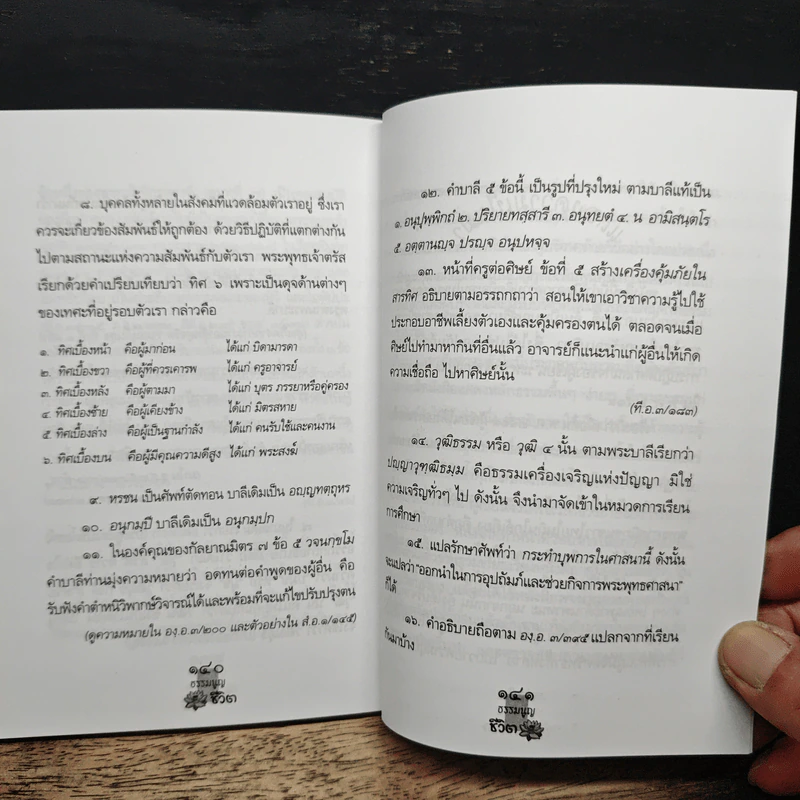 ๘. บุคคลทั้งหลายในสังคมที่แวดล้อมตัวเราอยู่ ซึ่งเรา
ควรจะเกี่ยวข้องสัมพันธ์ให้ถูกต้อง ด้วยวิธีปฏิบัติที่แตกต่างกัน
ไปตามสถานะแห่งความสัมพันธ์กับตัวเรา พระพุทธเจ้าตรัส
เรียกด้วยคำเปรียบเทียบว่า ทิศ ๖ เพราะเป็นดุจด้านต่างๆ
ของเทศะที่อยู่รอบตัวเรา กล่าวคือ
๑. ทิศเบื้องหน้า คือผู้มาก่อน ได้แก่ บิดามารดา
๒. ทิศเบื้องขวา คือผู้ที่ควรเคารพ ได้แก่ ครูอาจารย์
๓. ทิศเบื้องหลัง คือผู้ตามมา ได้แก่ บุตร ภรรยาหรือคู่ครอง
๔. ทิศเบื้องซ้าย คือผู้เคียงข้าง ได้แก่ มิตรสหาย
๕. ทิศเบื้องล่าง คือผู้เป็นฐานกำลัง ได้แก่ คนรับใช้และคนงาน
๖. ทิศเบื้องบน คือผู้มีคุณความดีสูง ได้แก่ พระสงฆ์
๙. หรชน เป็นศัพท์ตัดทอน บาลีเดิมเป็น อญฺญทตฺถุหร
๑๐. อนุกมฺปี บาลีเดิมเป็น อนุกมฺปก
๑๑. ในองค์คุณของกัลยาณมิตร ๗ ข้อ ๕ วจนกฺขโม
คำบาลีท่านมุ่งความหมายว่า อดทนต่อคำพูดของผู้อื่น คือ
รับฟังคำตำหนิวิพากษ์วิจารณ์ได้และพร้อมที่จะแก้ไขปรับปรุงตน
(ดูความหมายใน องฺ.อ.๓/๒๐๐ และตัวอย่างใน สํ.อ.๑/๑๔๕)
๑๔๐
ธรรมนูญ
ชีวิต
๑๒. คำบาลี ๕ ข้อนี้ เป็นรูปที่ปรุงใหม่ ตามบาลีแท้เป็น
๑. อนุปุพฺพิกถํ ๒. ปริยายทสฺสาวี ๓. อนุทยตํ ๔. น อามิสนฺตโร
๕. อตฺตานญฺจ ปรญฺจ อนุปหจฺจ
๑๓. หน้าที่ครูต่อศิษย์ ข้อที่ ๕ สร้างเครื่องคุ้มภัยใน
สารทิศ อธิบายตามอรรถกถาว่า สอนให้เขาเอาวิชาความรู้ไปใช้
ประกอบอาชีพเลี้ยงตัวเองและคุ้มครองตนได้ ตลอดจนเมื่อ
ศิษย์ไปทำมาหากินที่อื่นแล้ว อาจารย์ก็แนะนำแก่ผู้อื่นให้เกิด
ความเชื่อถือ ไปหาศิษย์นั้น
(ที.อ.๓/๑๘๓)
๑๔. วุฒิธรรม หรือ วุฒิ ๔ นั้น ตามพระบาลีเรียกว่า
ปญฺญาวุฑฺฒิธมฺม คือธรรมเครื่องเจริญแห่งปัญญา มิใช่
ความเจริญทั่วๆ ไป ดังนั้น จึงนำมาจัดเข้าในหมวดการเรียน
การศึกษา
๑๕. แปลรักษาศัพท์ว่า กระทำบุพการในศาสนานี้ ดังนั้น
จะแปลว่า"ออกนำในการอุปถัมภ์และช่วยกิจการพระพุทธศาสนา"
ก็ได้
๑๖. คำอธิบายถือตาม องฺ.อ. ๓/๓๙๕ แปลกจากที่เรียน
กันมาบ้าง
๑๔๑
ธรรมนูญ
ชีวิต